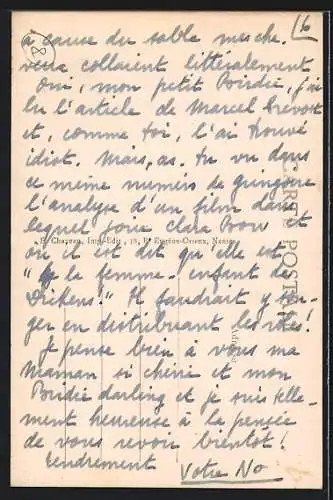 (6
à cause du sable mache.
vous collaient littéralement
Oui, mon petit Boirdie, j'ai
lu l'article de Marcel Prévost
et, comme toi, l'ai trouvé
idiot. Mais, as-tu vu dans
ce même numéro de Gringoire
l'analyse d'un film dans
lequel joue Clara Bow et
F. Chateau, Imp.-Edit., 18, R. Eugène-Orieux, Nantes
CARTE POSTALE
où il est dit qu'elle est
"la femme-enfant de
Dickens!" Il faudrait y son-
ger en distribuant les rôles!
Je pense bien à vous ma
Maman si chérie et mon
Birdie darling et je suis telle-
ment heureuse à la pensée
de vous revoir bientôt!
tendrement
Votre No